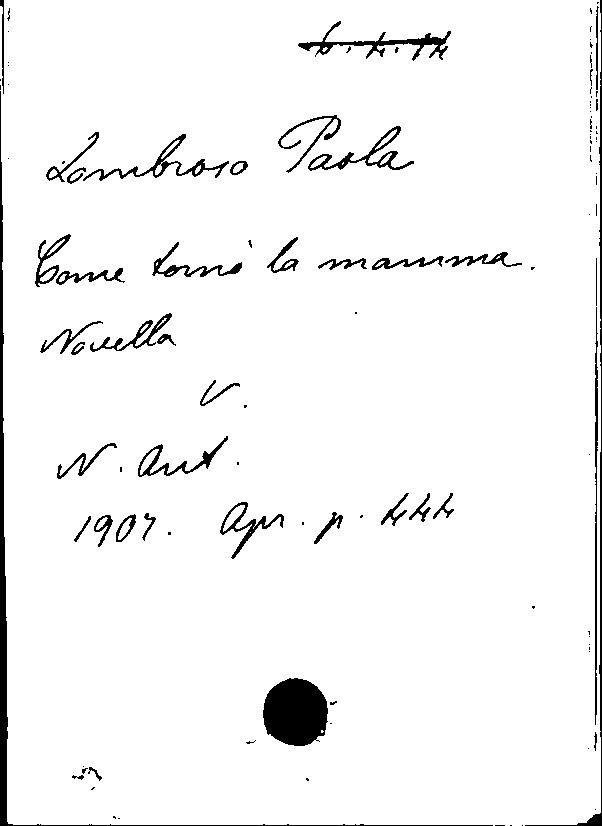 6.4.14
Lombroso Paola
Come tornò la mamma.
Novella
V.
N. Ant.
1907. Apr. p. 444